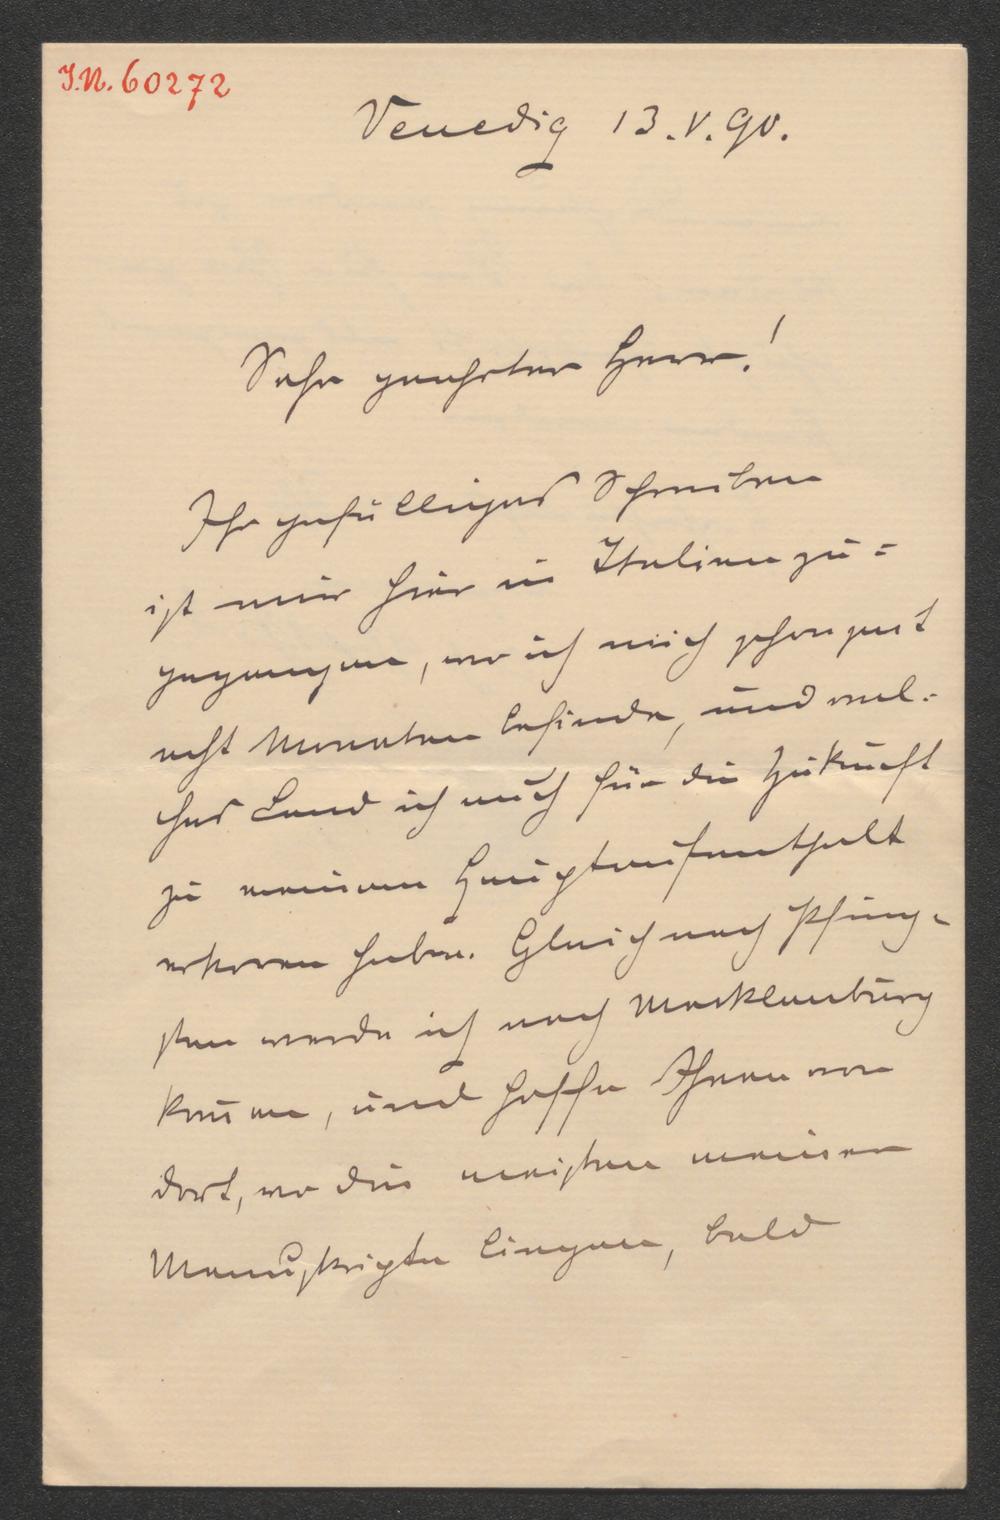 J.N. 60272
Venedig 13.V.90.
Sehr geehrter Herr!
Ihr gefälliges Schreiben
ist mir hier in Italien zu=
gegangen, wo ich mich schon seit
acht Monaten befinde, und wel=
ches Land ich auch für die Zukunft
zu meinem Hauptaufenthalt
erkoren habe. Gleich nach Pfing=
sten werde ich nach Mecklenburg
kommen, und hoffe Ihnen von
dort, wo die meisten meiner
Manuskripte liegen, bald